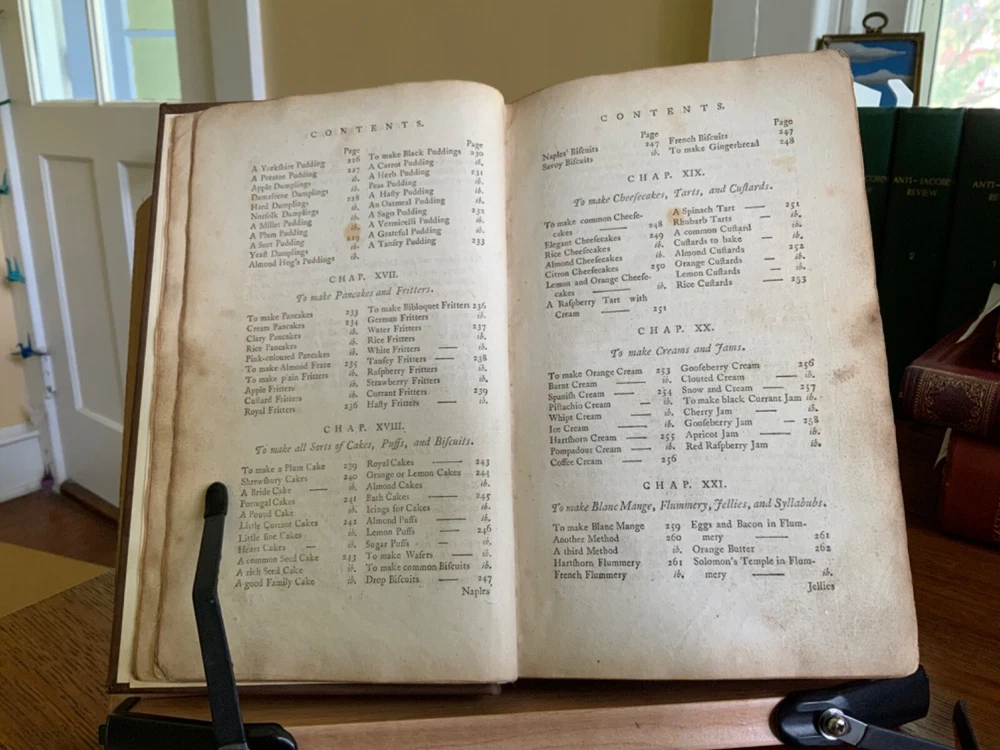 CONTENTS.
Page
A Yorkſhire Pudding 226
A Potatoe Pudding 227
Apple Dumplings ib.
Damſcene Dumplings ib.
Hard Dumplings 228
Norfolk Dumplings ib.
A Millet Pudding ib.
A Plum Pudding ib.
Pudding 229
Yeaſt Dumplings ib.
Almond Hog's Puddings ib.
Page
To make Black Puddings 230
A Carrot Pudding ib.
A Herb Pudding 231
Peas Pudding ib.
A Haſty Pudding ib.
An Oatmeal Pudding ib.
A Sago Pudding 232
A Vermicelli Pudding ib.
A Grateful Pudding ib.
A Tanſey Pudding 233
CHAP. XVII.
To make Pancakes and Fritters.
To make Pancakes 233
Cream Pancakes 234
Clary Pancakes ib.
Rice Pancakes ib.
Pink-coloured Pancakes ib.
To make Almond Fraze 235
To make plain Fritters ib.
Apple Fritters ib.
Cuſtard Fritters ib.
Royal Fritters 236
To make Bibloquet Fritters 236
German Fritters ib.
Water Fritters 237
Rice Fritters ib.
White Fritters — ib.
Tanſey Fritters — 238
Raſpberry Fritters ib.
Strawberry Fritters ib.
Currant Fritters 239
Haſty Fritters — ib.
CHAP. XVIII.
To make all Sorts of Cakes, Puffs, and Biſcuits.
To make a Plum Cake 239
Shrewſbury Cakes 240
A Bride Cake — ib.
Portugal Cakes 241
A Pound Cake ib.
Little Currant Cakes 242
Little fine Cakes ib.
Heart Cakes — ib.
A common Seed Cake 243
A rich Seed Cake ib.
A good Family Cake ib.
Royal Cakes — 243
Orange or Lemon Cakes 244
Almond Cakes ib.
Bath Cakes — 245
Icings for Cakes ib.
Almond Puffs — ib.
Lemon Puffs — 246
Sugar Puffs — ib.
To make Wafers — ib.
To make common Biſcuits ib.
Drop Biſcuits — 247
Naples
CONTENTS.
Page
Naples' Biſcuits 247
Savoy Biſcuits ib.
Page
French Biſcuits 247
To make Gingerbread 248
CHAP. XIX.
To make Cheeſecakes, Tarts, and Cuſtards.
To make common Cheeſe-
cakes — 248
Elegant Cheeſecakes 249
Rice Cheeſecakes ib.
Almond Cheeſecakes ib.
Citron Cheeſecakes 250
Lemon and Orange Cheeſe-
cakes — ib.
A Raſpberry Tart with
Cream — 251
A Spinach Tart — 251
Rhubarb Tarts — ib.
A common Cuſtard ib.
Cuſtards to bake — ib.
Almond Cuſtards 252
Orange Cuſtards — ib.
Lemon Cuſtards — ib.
Rice Cuſtards — 253
CHAP. XX.
To make Creams and Jams.
To make Orange Cream 253
Burnt Cream — ib.
Spaniſh Cream — 254
Piſtachio Cream — ib.
Whipt Cream — ib.
Ice Cream — ib.
Hartſhorn Cream — 255
Pompadour Cream — ib.
Coffee Cream — 256
Gooſeberry Cream 256
Clouted Cream — ib.
Snow and Cream — 257
To make black Currant Jam ib.
Cherry Jam — ib.
Gooſeberry Jam — 258
Apricot Jam — ib.
Red Raſpberry Jam ib.
CHAP. XXI.
To make Blanc Mange, Flummery, Jellies, and Syllabubs.
To make Blanc Mange 259
Another Method 260
A third Method ib.
Hartſhorn Flummery 261
French Flummery ib.
Eggs and Bacon in Flum-
mery — 261
Orange Butter — 262
Solomon's Temple in Flum-
mery — ib.
Jellies
ANTI-JACOBIN
REVIEW